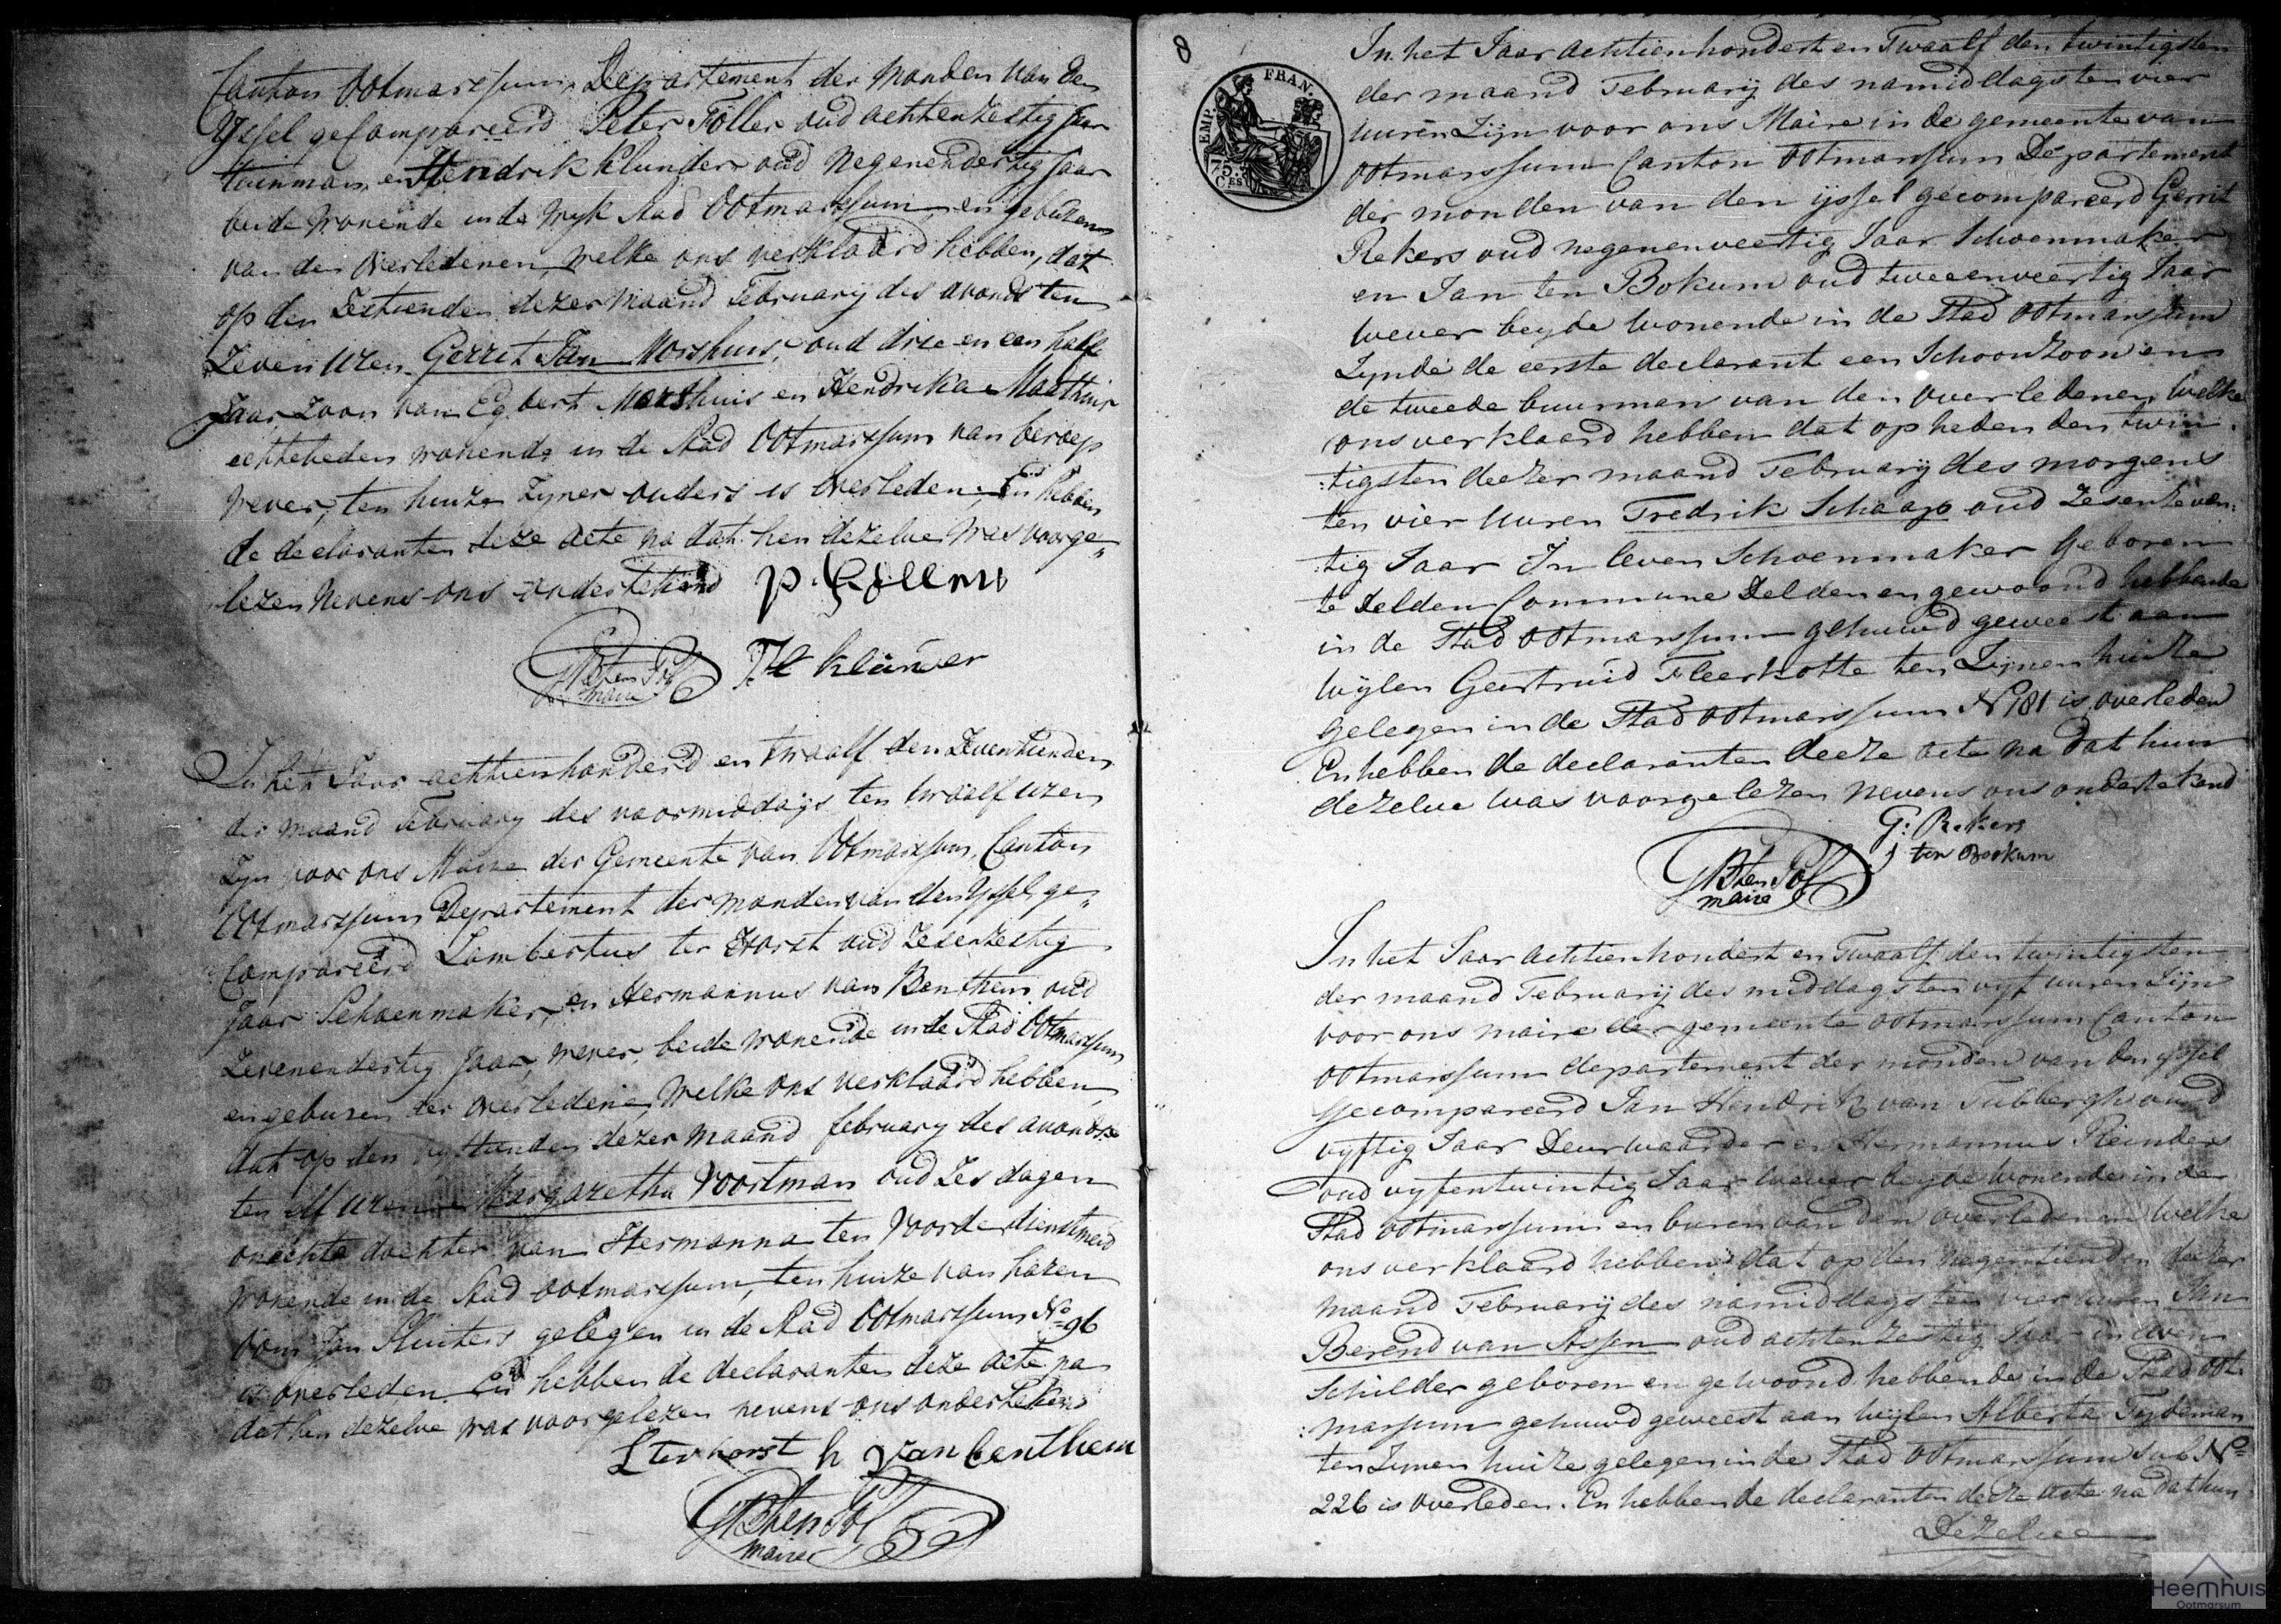 Canton Ootmarssum, Departement der Monden van den
Yssel gecompareerd Peter Föller oud achtenzestig Jaar
tuinman, en Hendrik Klunder oud negenendertig Jaar
beide wonende in de wyk stad Ootmarssum, en geburen
van den overledenen, welke ons verklaard hebben, dat
op den zestienden dezer maand February des avonds ten
zeven uren Gerret Jan Morshuis, oud drie en een half
Jaar Zoon van Egbert Morshuis en Hendrika Maathuis
echtelieden wonende in de Stad Ootmarssum van beroep
wever, ten huize zyner ouders is overleden, En hebben
de declaranten deze acte na dat hen dezelve was voorge„
lezen nevens ons ondertekend P. Föllen
GB ten Pol
maire
H klunder
In het Jaar achttienhonderd en twaalf den Zeventienden
der maand February des voormiddags ten twaalf uren
Zyn voor ons Maire der Gemeente van Ootmarssum, Canton
Ootmarssum Departement der monden van den Yssel ge„
Compareerd Lambertus ter Horst oud Zesenzestig
Jaar Schoenmaker, en Hermannus van Benthem oud
Zevenendertig Jaar, wever, beide wonende in de Stad Ootmarssum
en geburen der overledene, welke ons verklaard hebben,
dat op den vyftienden dezer maand february des avonds
ten uren Margaretha Voortman oud Zes dagen
onechte dochter van Hermanna ten Voorde dienstmeid
wonende in de Stad Ootmarssum, ten huize van haren
oom Jan Sluiters gelegen in de Stad Ootmarssum No 96
is overleden En hebben de declaranten deze acte, na
dat hen dezelve was voorgelezen nevens ons ondertekend
L ter horst h van benthem
GB ten Pol
maire
8
EMP. FRAN.
75.
CES
In het Jaar achttienhondert en Twaalf den twintigsten
der maand February des namiddags ten vier
uuren Zijn voor ons Maire in de gemeente van
Ootmarssum Canton Ootmarssum Departement
der monden van den ijssel gecompareerd Gerrit
Rekers oud negenenveertig Jaar Schoenmaker
en Jan ten Bokum oud tweeenveertig Jaar
wever beyde wonende in de Stad Ootmarssum
Zynde de eerste declarant een Schoonzoon en
de tweede buurman van den overledenen, welke
ons verklaard hebben dat op heden den twin
:tigsten deezer maand February des morgens
ten vier uuren Fredrik Schaap oud Zesenzeven:
:tig Jaar In leven Schoenmaker Geboren
te Delden Commune Delden en gewoond hebbende
in de Stad Ootmarssum gehuwd geweest aan
wylen Geertruid Fleerkotte ten Zynen huize
gelegen in de Stad Ootmarssum No 181 is overleden
En hebben de declaranten deeze acte na dat hun
dezelve was voorgelezen nevens ons ondertekend
G: Rekers
J ten Bookum
GB ten Pol
maire
In het Jaar achttienhondert en Twaalf den twintigsten
der maand February des middags ten vyf uuren Zijn
voor ons maire der gemeente Ootmarssum Canton
Ootmarssum departement der monden van den yssel
gecompareerd Jan Hendrik van Tubbergh oud
vyftig Jaar Deurwaarder en Hermannus Reinders
oud vyfentwintig Jaar wever beyde wonende in de
Stad Ootmarssum en buren van den overledenen welke
ons verklaard hebben dat op den negentienden deezer
maand February des namiddags ten vier uuren Jan
Berend van Assen oud achtenzestig Jaar in leven
Schilder geboren en gewoond hebbende in de Stad Oot
:marssum gehuwd geweest aan wylen Alberta Tydeman
ten Zynen huize gelegen in de Stad Ootmarssum sub No
226 is overleden. En hebben de declaranten deeze acte na dat hun
Dezelve
Heemhuis
Ootmarsum